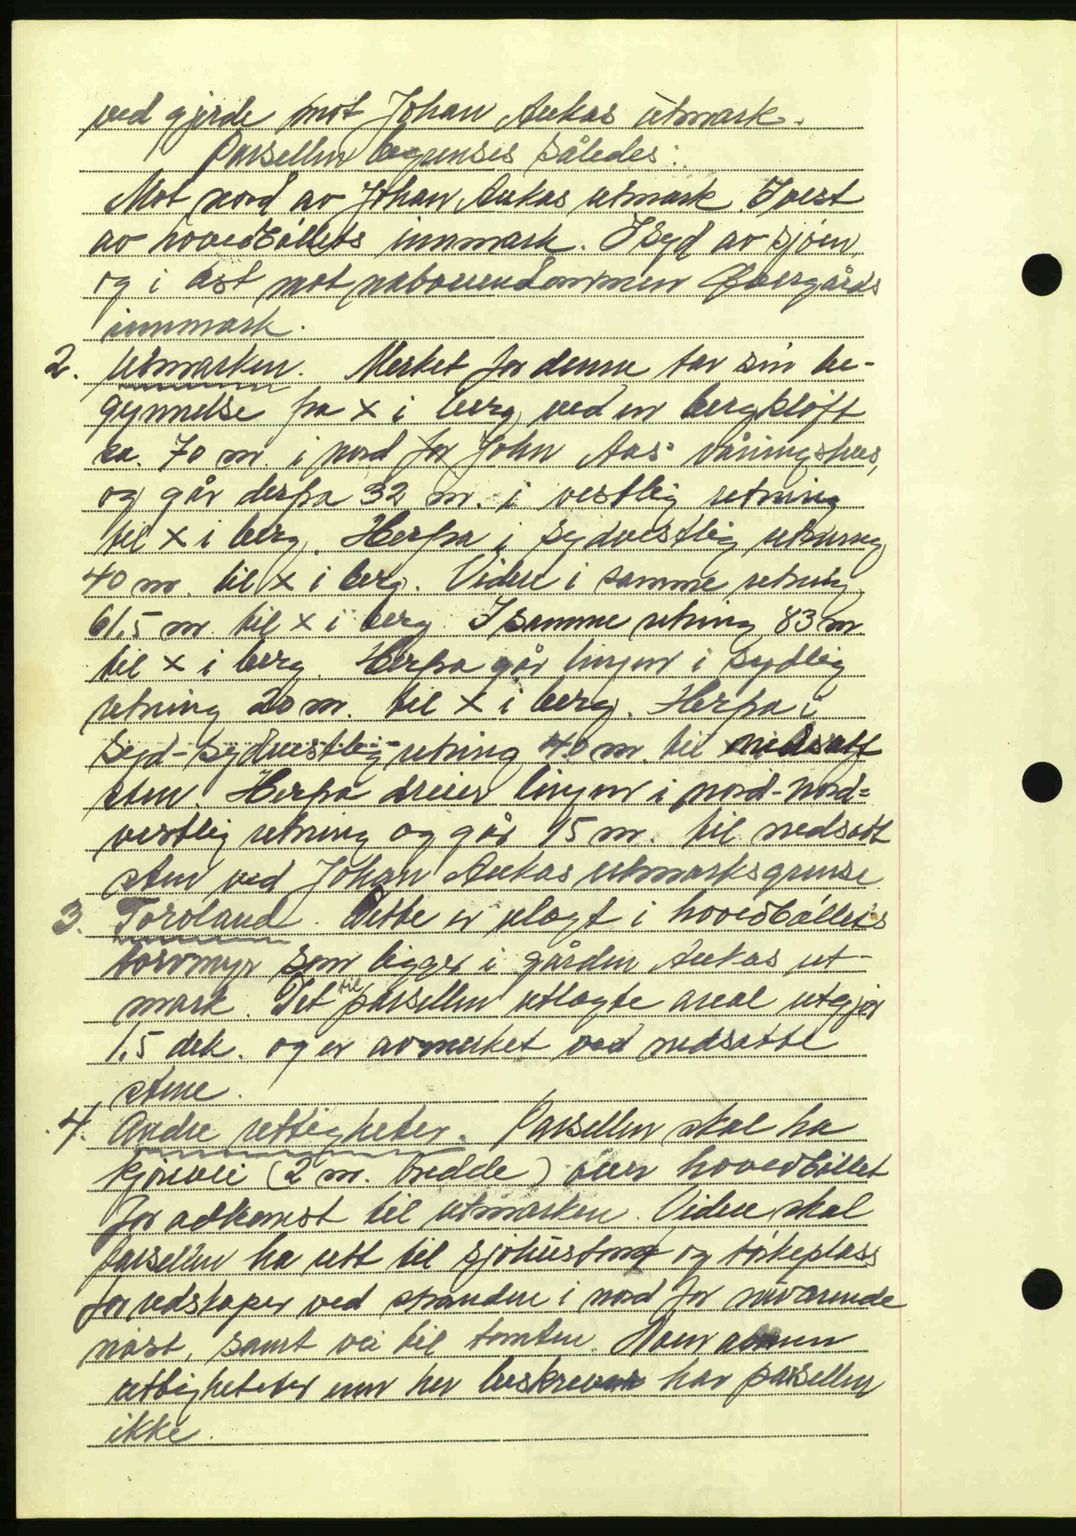 ved gjerde mot Johan Aukas utmark.
Parsellen begrenses således:
Mot nord av Johan Aukas utmark. I vest
av hovedbøllets innmark. I syd av sjøen,
og i øst mot naboeiendommen Øvergårds
innmark.
2. Utmarken. Merket for denne tar sin be-
gynnelse fra x i berg, ved en bergkløft
ca. 70 m. i nord for John Aas' våningshus,
og går derfra 32 m. i vestlig retning
til x i berg. Herfra i sydvestlig retning
40 m. til x i berg. Videre i samme retning
61.5 m. til x i berg. I samme retning 83 m.
til x i berg. Herfra går linjen i sydlig
retning 20 m. til x i berg. Herfra i
syd-sydvestlig retning 40 m. til nedsatt
sten. Herfra dreier linjen i nord-nord=
vestlig retning og går 15 m. til nedsatt
sten ved Johan Aukas utmarksgrense.
3. Torvland. Dette er utlagt i hovedbøllets
torvmyr som ligger i gården Aukas ut-
mark. Det til parsellen utlagte areal utgjør
1.5 dek. og er avmerket ved nedsatte
stene.
4. Andre rettigheter. Parsellen skal ha
kjørevei (2 m. bredde) over hovedbøllet
for adkomst til utmarken. Videre skal
parsellen ha rett til sjøhustomt og tørkeplass
for redskaper ved stranden i nord for nuværende
nøst, samt vei til tomten. Noen annen
rettigheter enn her beskrevne har parsellen
ikke.